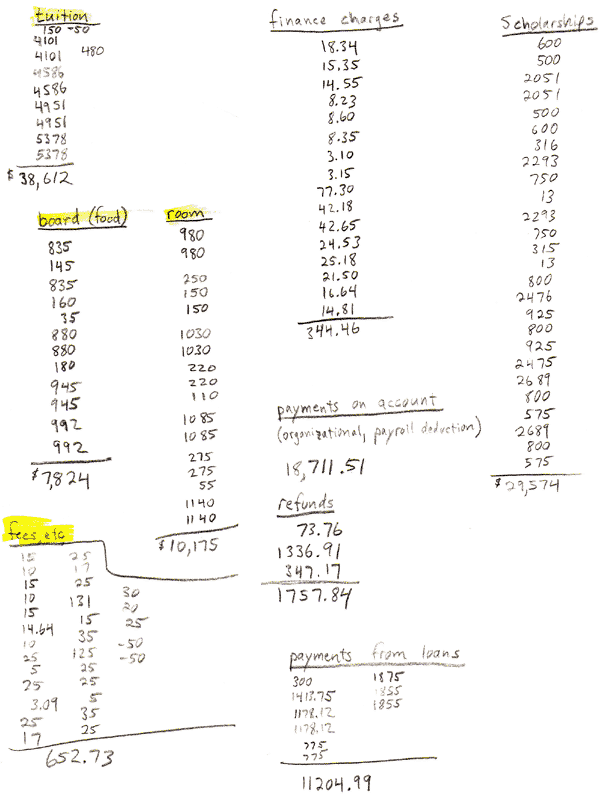 tuition
150 -50
4101
4101 480
4586
4586
4951
4951
5378
5378
$38,612
board (food)
835
145
835
160
35
880
880
180
945
945
992
992
$7,824
room
980
980
250
150
150
1030
1030
220
220
110
1085
1085
275
275
55
1140
1140
$10,175
fees, etc
15 25
10 17
15 25
10 131 30
15 15 20
14.64 35 25
10 125 -50
25 25 -50
5 25
25 5
3.09 35
25 25
17
652.73
finance charges
18.34
15.35
14.55
8.23
8.60
8.35
3.10
3.15
77.30
42.18
42.65
24.53
25.18
21.50
16.64
14.81
344.46
payments on account
(organizational, payroll deduction)
18,711.51
refunds
73.76
1336.91
347.17
1757.84
payments from loans
300 1875
1413.75 1855
1178.12 1855
1178.12
775
775
11204.99
Scholarships
600
500
2051
2051
500
600
316
2293
750
13
2293
750
315
13
800
2476
925
800
925
2475
2689
800
575
2689
800
575
$29,574